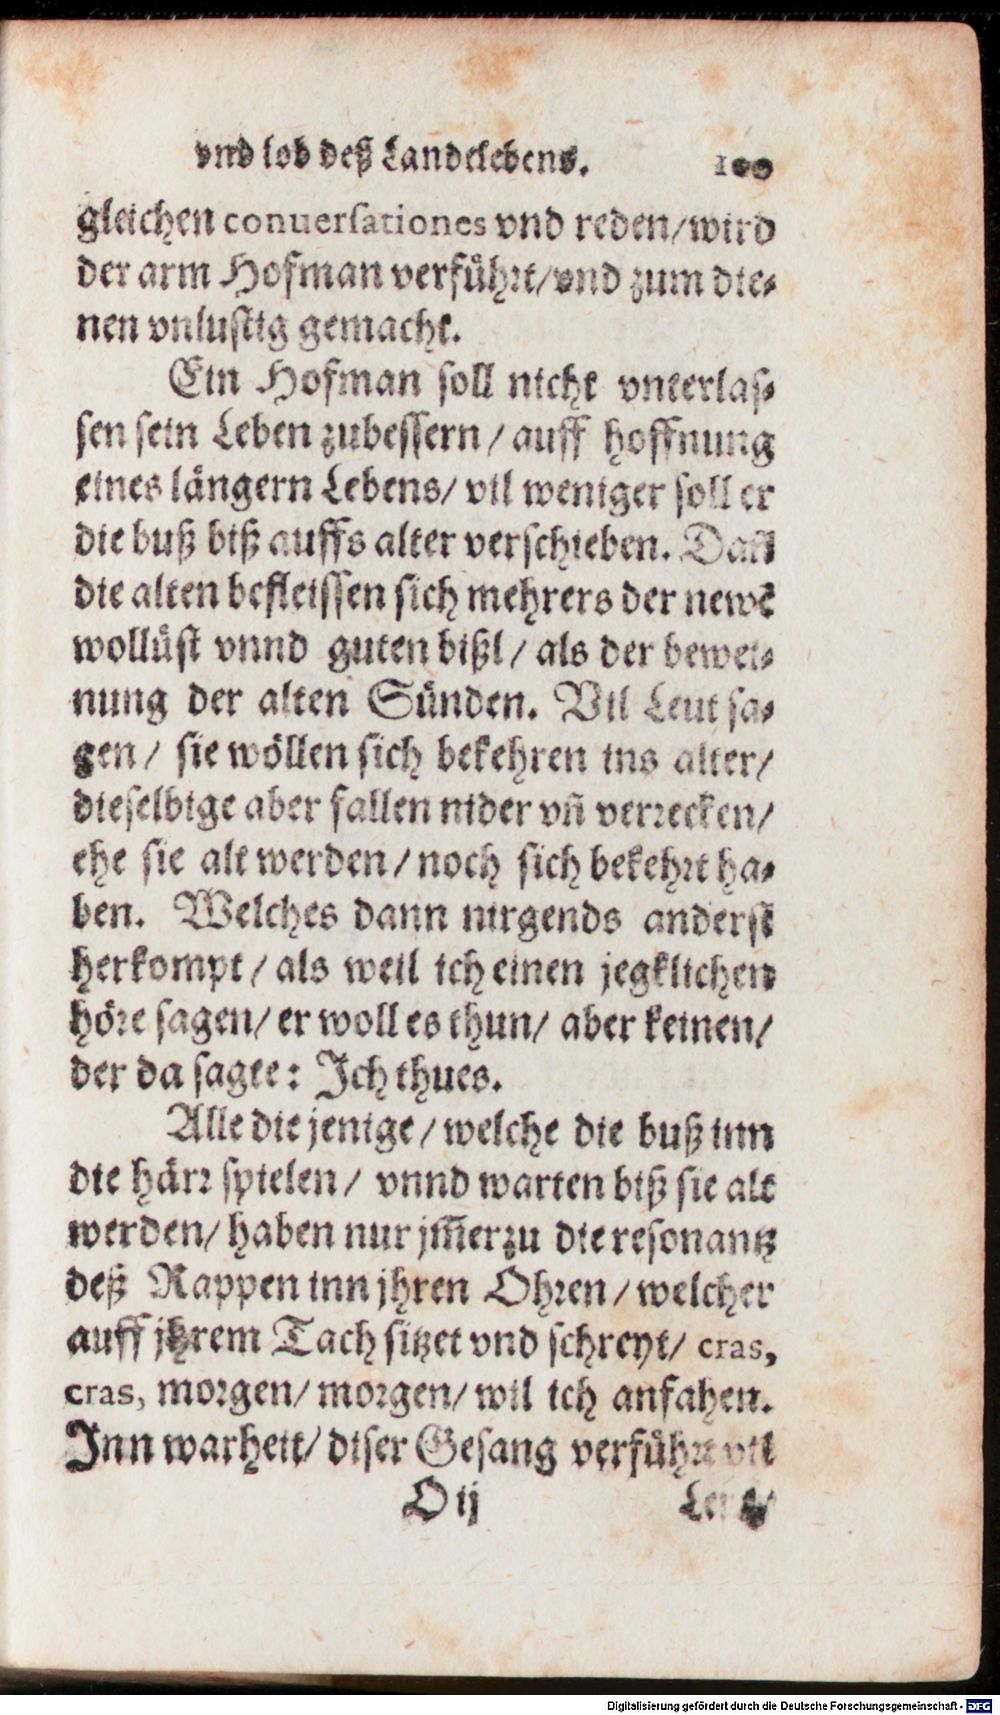 vnd lob deß Landtlebens. 100
gleichen conuersationes vnd reden/wird
der arm Hofman verführt/vnd zum die⸗
nen vnlustig gemacht.
Ein Hofman soll nicht vnterlas⸗
sen sein Leben zubessern/ auff hoffnung
eines längern Lebens/ vil weniger soll er
die buß biß auffs alter verschieben. Dañ
die alten befleissen sich mehrers der newẽ
wollüst vnnd guten bißl/ als der bewei⸗
nung der alten Sünden. Vil Leut sa⸗
gen/ sie wöllen sich bekehren ins alter/
dieselbige aber fallen nider vñ verrecken/
ehe sie alt werden/ noch sich bekehrt ha⸗
ben. Welches dann nirgends anderst
herkompt/ als weil ich einen jegklichen
höre sagen/ er woll es thun/ aber keinen/
der da sagte: Ich thues.
Alle die jenige/ welche die buß inn
die härr spielen/ vnnd warten biß sie alt
werden/ haben nur jm̃erzu die resonantz
deß Rappen inn jhren Ohren/ welcher
auff jhrem Tach sitzet vnd schreyt/ cras,
cras, morgen/ morgen/ wil ich anfahen.
Inn warheit/ diser Gesang verführt vil
O ij Leut/
Digitalisierung gefördert durch die Deutsche Forschungsgemeinschaft - DFG